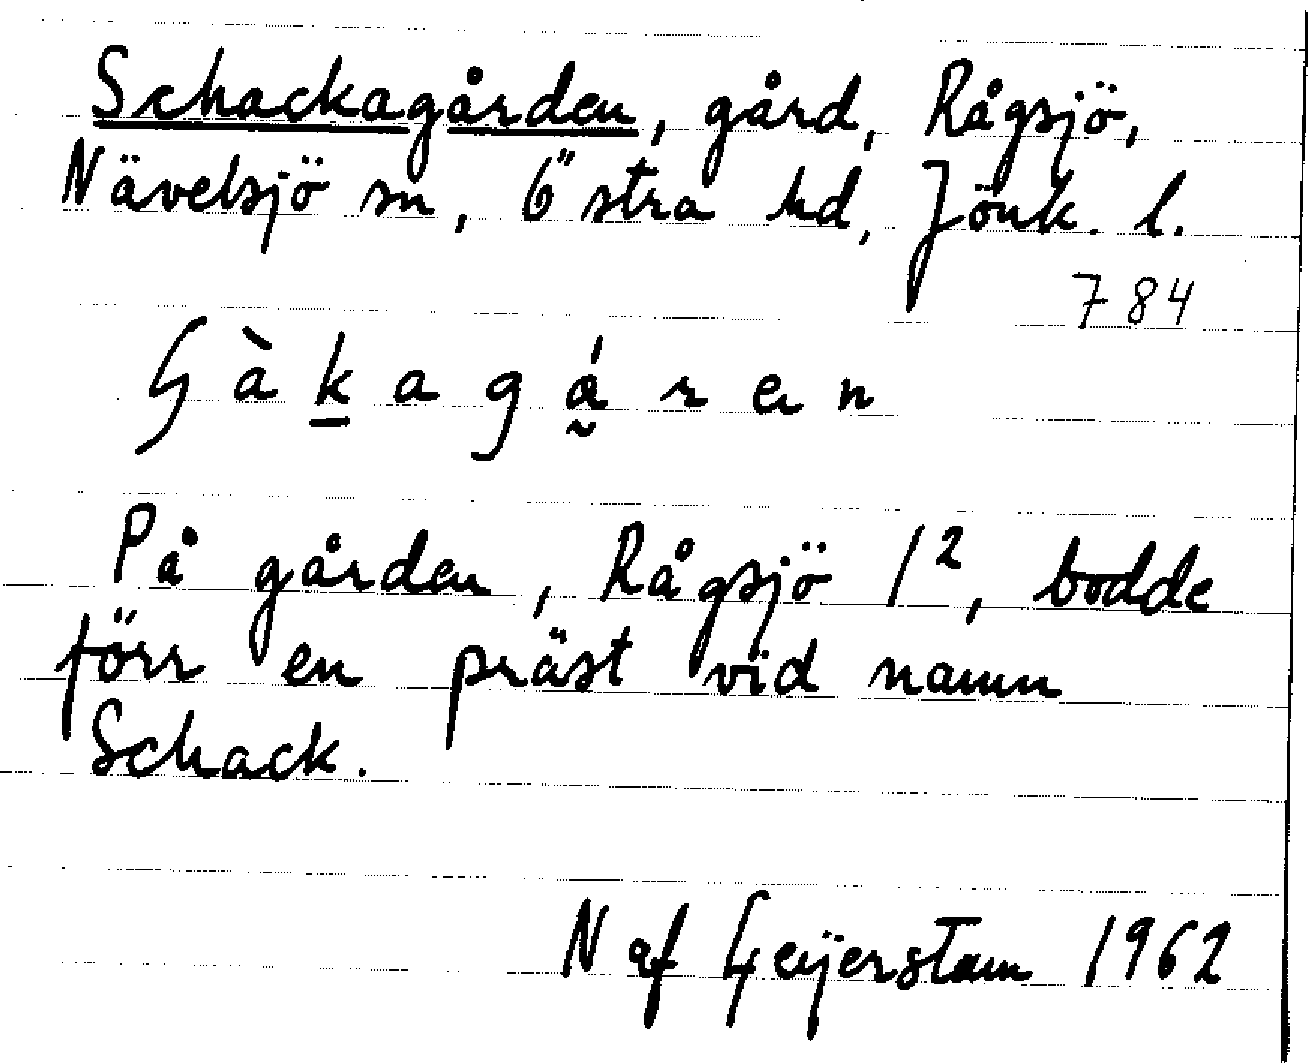 Schackagården, gård, Rågsjö,
Nävelsjö sn, Östra hd, Jönk. l.
784
På gården, Rågsjö 1², bodde
förr en präst vid namn
Schack.
N af Geijerstam 1962